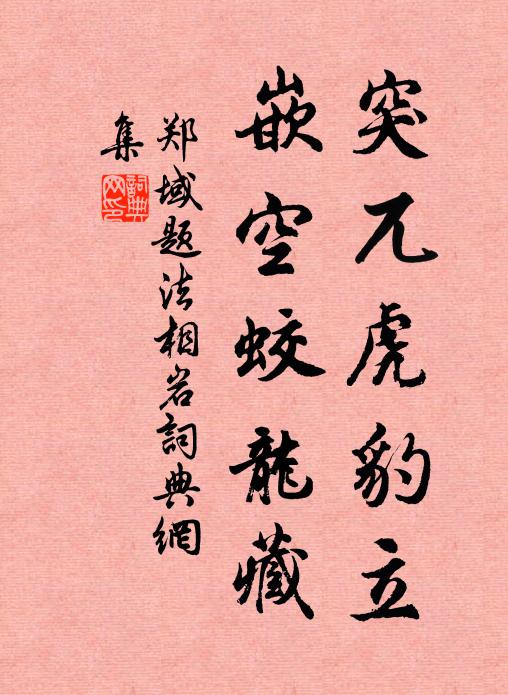 突兀虎豹立
嵌空蛟龍藏
郑域题法相岩詞典網
集
詞典网印